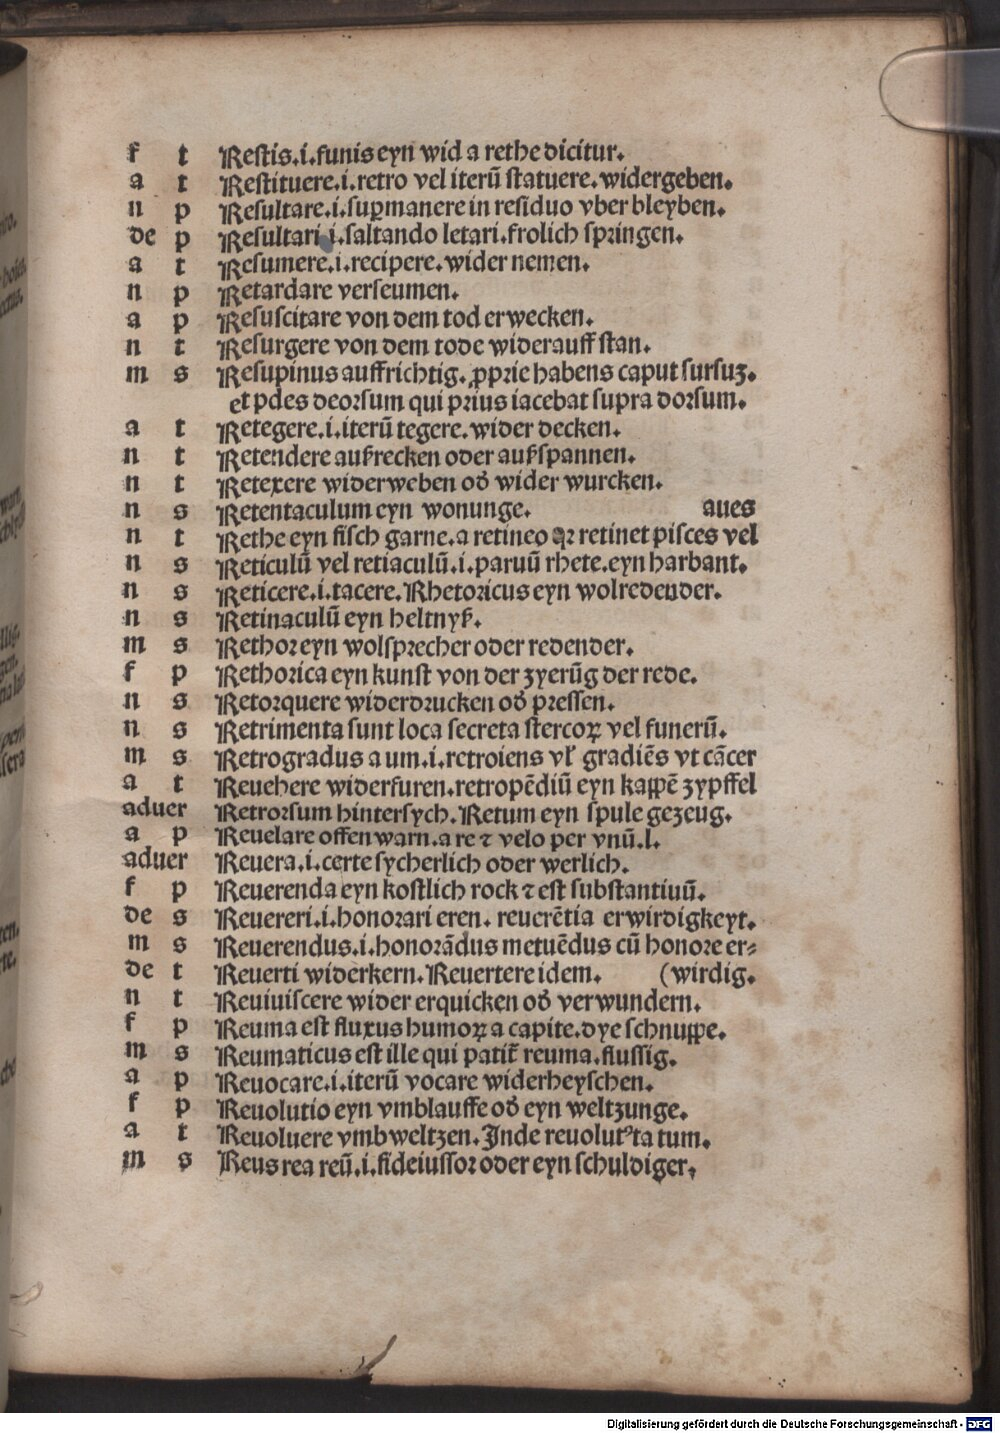 f t Restis.i.funis eyn wid a rethe dicitur.
a t Restituere.i.retro vel iterū statuere.widergeben.
n p Resultare.i.suꝑmanere in residuo vber bleyben.
de p Resultari.i.saltando letari.frolich springen.
a t Resumere.i.recipere.wider nemen.
n p Retardare verseumen.
a p Resuscitare von dem tod erwecken.
n t Resurgere von dem tode widerauff stan.
m s Resupinus auffrichtig.ꝓprie habens caput sursuꝫ.
et pdes deorsum qui prius iacebat supra dorsum.
a t Retegere.i.iterū tegere.wider decken.
n t Retendere außrecken oder außspannen.
n t Retexere widerweben od̓ wider wurcken.
n s Retentaculum eyn wonunge. aues
n t Rethe eyn fisch garne.a retineo qꝛ retinet pisces vel
n s Reticulū vel retiaculū.i.paruū rhete.eyn harbant.
n s Reticere.i.tacere.Rhetoricus eyn wolredender.
n s Retinaculū eyn heltnyß.
m s Rethor eyn wolsprecher oder redender.
f p Rethorica eyn kunst von der zyerūg der rede.
n s Retorquere widerdrucken od̓ pressen.
n s Retrimenta sunt loca secreta stercoꝝ vel funerū.
m s Retrogradus a um.i.retroiens vł gradiēs vt cācer
a t Reuehere widerfuren.retropēdiū eyn kappē zypffel
aduer Retrorsum hintersych.Retum eyn spule gezeug.
a p Reuelare offen warn.a re ⁊ velo per vnū.l.
aduer Reuera.i.certe sycherlich oder werlich.
f p Reuerenda eyn kostlich rock ⁊ est substantiuū.
de s Reuereri.i.honorari eren. reuerētia erwirdigkeyt.
m s Reuerendus.i.honorādus metuēdus cū honore er⸗
de t Reuerti widerkern.Reuertere idem. (wirdig.
n t Reuiuiscere wider erquicken od̓ verwundern.
f p Reuma est fluxus humoꝝ a capite.dye schnuppe.
m s Reumaticus est ille qui patit̄ reuma.flussig.
a p Reuocare.i.iterū vocare widerheyschen.
f p Reuolutio eyn vmblauffe od̓ eyn weltzunge.
a t Reuoluere vmbweltzen.Inde reuolutꝰ ta tum.
m s Reus rea reū.i.fideiussor oder eyn schuldiger.
Digitalisierung gefördert durch die Deutsche Forschungsgemeinschaft - DFG